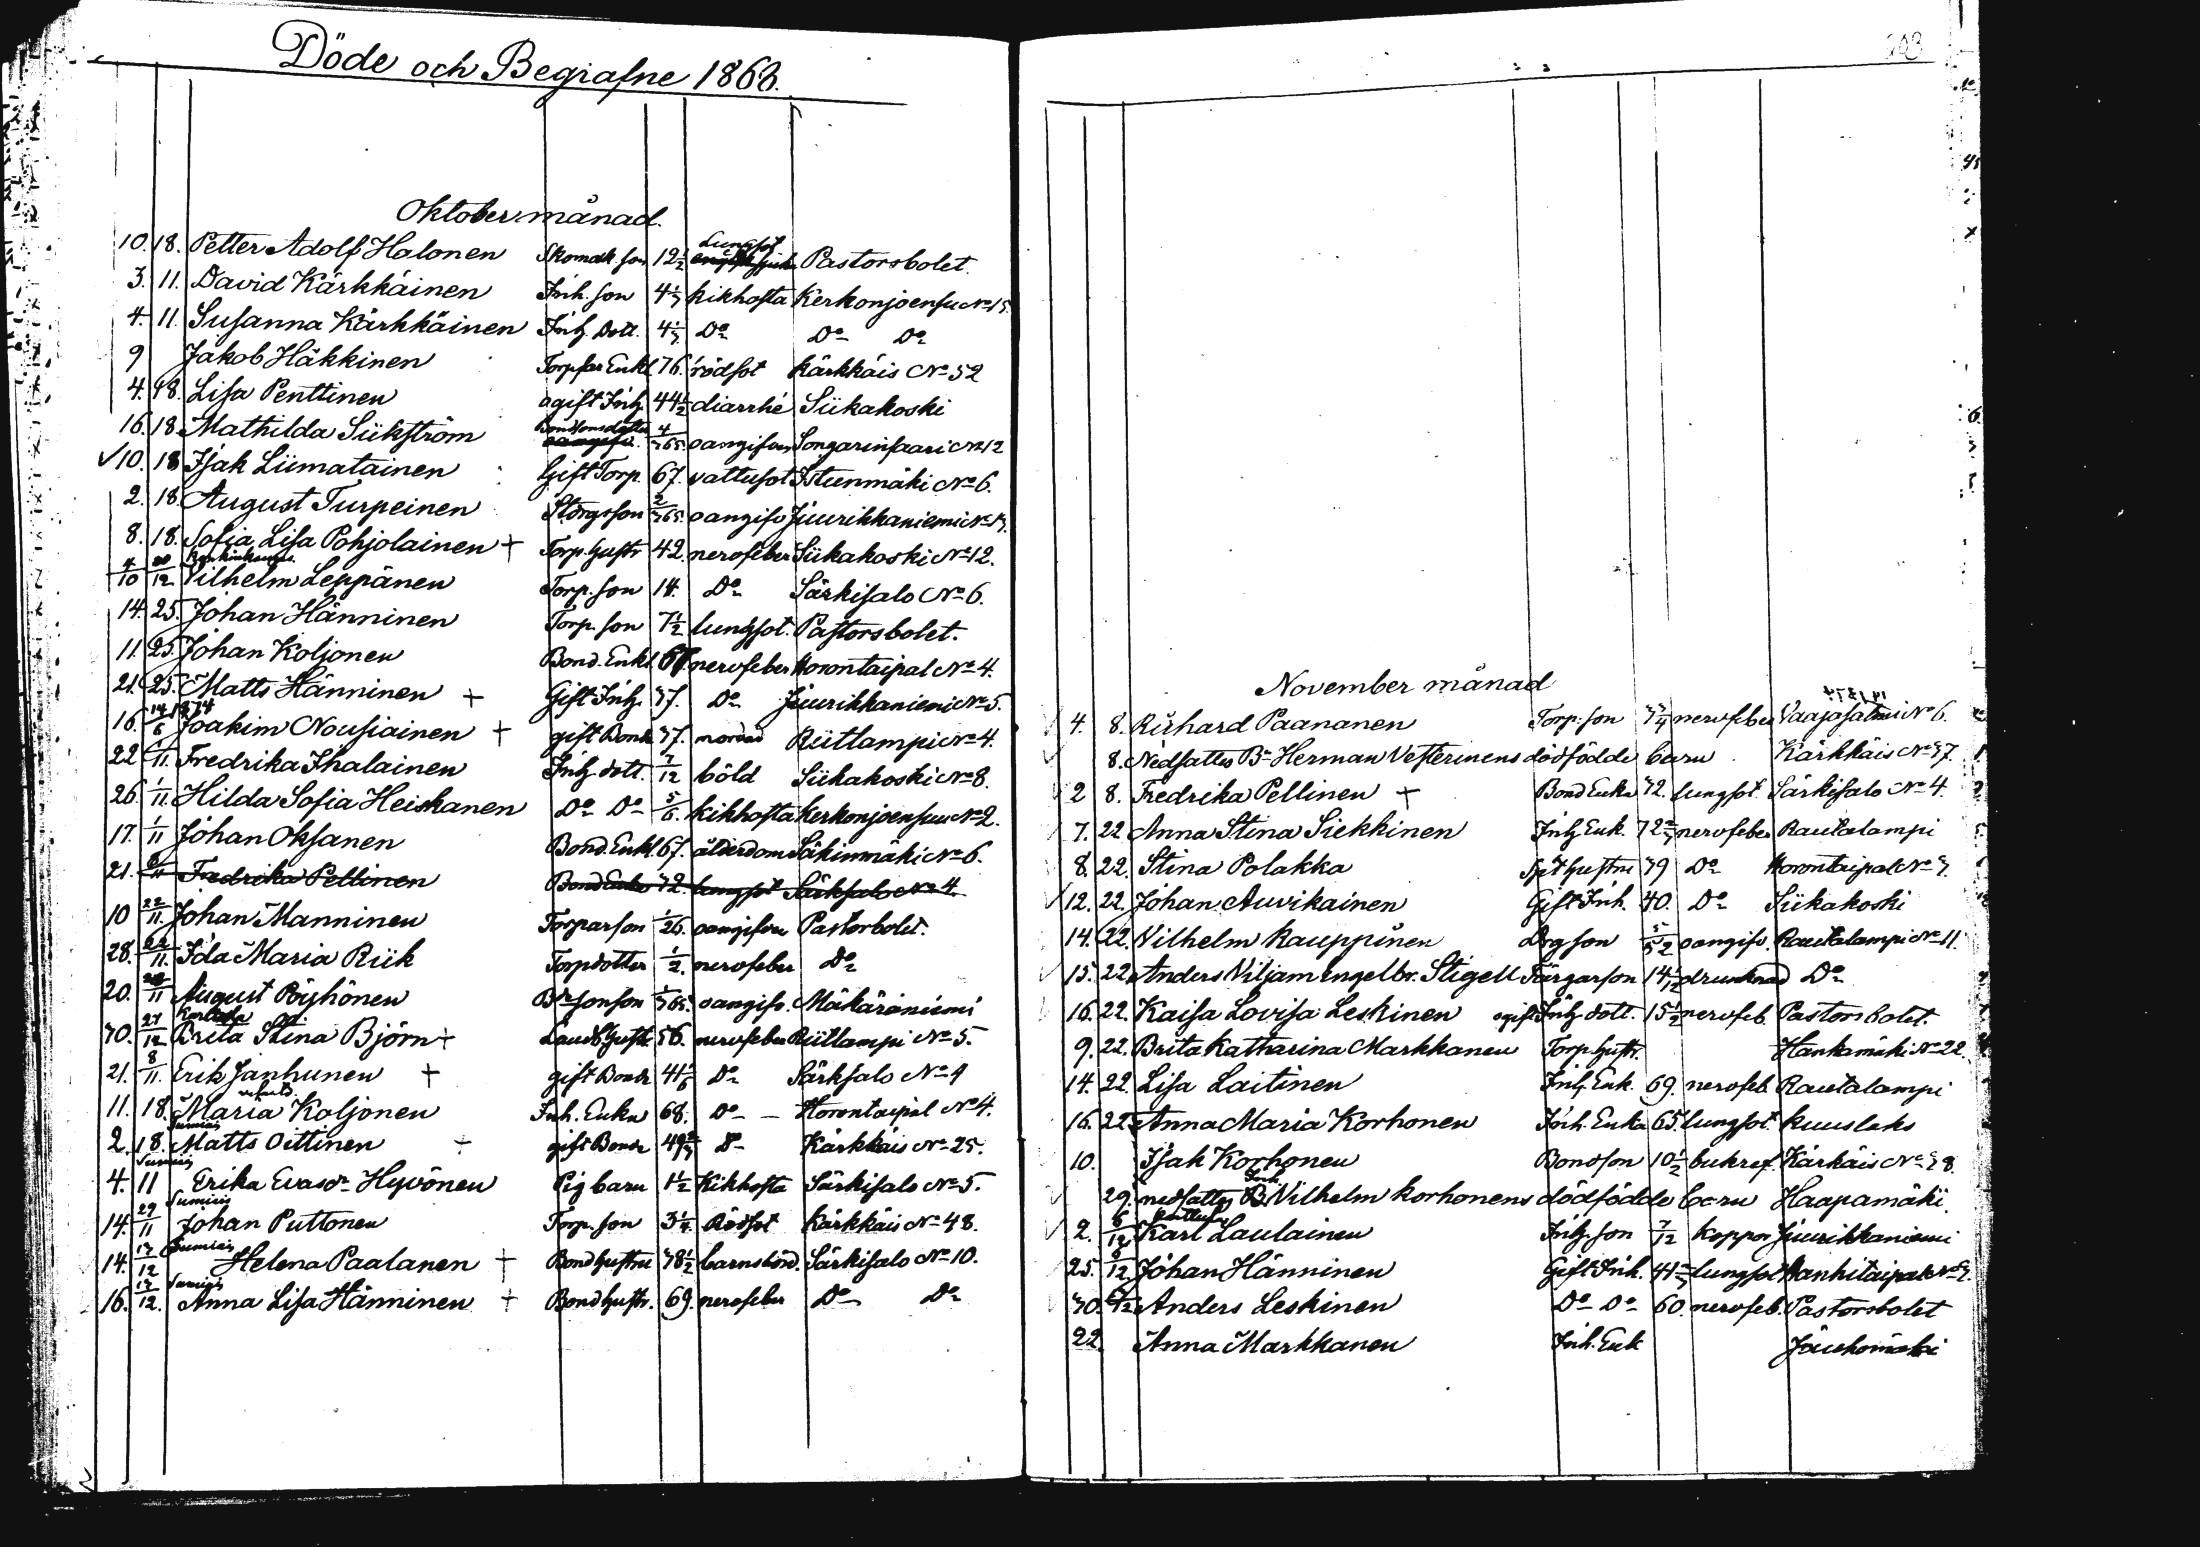 Döde och Begrafne 1868.
Oktober månad.
Lungsot
10. 18. Petter Adolf Halonen Skomak. son 12½ Pastorsbolet.
3. 11. David Kärkkäinen Inh. son 4 kikhosta Kerkonjoensu No 15.
4. 11. Susanna Kärkkäinen Inh. Dott. 4 Do Do Do
9 Jakob Häkkinen Torpfar Enkl. 76. rödsot Kärkkäis No 52
4. 18. Lisa Penttinen ogift Inh. 44½ diarrhé Siikakoski
Bondsonsdotter
16. 18. Mathilda Siikström 4/365 oangifven Songarinsaari No 12
10. 18 Isak Liimatainen Gift Torp. 67. vattusot Istunmäki No 6.
2. 18. August Turpeinen Storgsson 2/365. oangifv Jiuurikkaniemi No 13.
8. 18. Sofia Lisa Pohjolainen + Torp. hustr 42. nervfeber Siikakoski No 12.
10 12 Vilhelm Leppänen Torp. son 14. Do Särkisalo No 6.
14. 25. Johan Hänninen Torp. son 7½ lungsot. Pastorsbolet.
11. 25. Johan Koljonen Bond. Enkl. nervfeber Horontaipal No 4.
21. 25. Matts Hänninen + Gift Inh. 37. Do Jiuurikkaniemi No 5.
16. 14/6 1874 Joakim Nousiainen + gift Bonde 37. mördad Riitlampi No 4.
22 1/11. Fredrika Ihalainen Inh dott. 7/12 böld Siikakoski No 8.
26. 1/11. Hilda Sofia Heiskanen Do Do 5/6. kikhosta Kerkonjoensuu No 2.
17. 1/11 Johan Oksanen Bond. Enkl. 67. ålderdom Säkinmäki No 6.
21. 8/11 Fredrika Pellinen Bond Enka 72. lungsot Särkisalo No 4
10 22/11. Johan Manninen Torparson 1/26. oangifven Pastorbolet.
28. 22/11. Ida Maria Riik Torpdotter ½. nervfeber Do
20. 11 August Pöyhönen Br sonson 1/365. oangifv. Mäkäräniemi
30. 27/12 Brita Stina Björn + Landb. hustr 56. nervfeber Riitlampi No 5.
21. 8/11. Erik Janhunen + gift Bonde 41 Do Särksalo No 9
11. 18. Maria Koljonen Inh. Enka 68. Do Horontaipal No 4.
Sumiais
2. 18. Matts Oittinen gift Bonde 49 D Kärkkäis No 25.
Sumiais
4. 11 Erika Evasdr Hyvönen Pig barn 1½ Kikhosta Särkisalo No 5.
Sumiais
14. 29/11 Johan Puttonen Torp. son 3¼ Rödsot Kärkkäis No 48.
Sumiais
14. 12 Helena Paalanen + Bond hustru 38½ barnsbörd. Särkisalo No 10.
Sumiais
16. 12. Anna Lisa Hänninen + Bond hustr. 69. nervfeber Do Do
203
November månad
4. 8. Richard Paananen Torp. son 3¾ nervfeber Vaajasalmi No 6.
8. Nedsattes Br Herman Vesterinens dödfödde barn Kärkkäis No 37.
2 8. Fredrika Pellinen + Bond Enka 72. lungsot. Särkisalo No 4.
7. 22 Anna Stina Siekkinen Inh Enk. 72 nervfeber Rautalampi
8. 22. Stina Polakka hustru 39 Do Horontaipal No 3.
12. 22. Johan Auvikainen Gift Inh. 40. Do Siikakoski
14. 22. Vilhelm Kauppinen Drg son 5/52 oangifv. Rautalampi No 11.
15. 22 Anders Viljam Engelbr. Stigell Färgarson 14 drunknad Do
16. 22. Kaisa Lovisa Leskinen ogift Inh dott. 15½ nervfeb. Pastorsbolet.
9. 22. Brita Katharina Markkanen Torp hustr. Hankamäki No 22.
14. 22. Lisa Laitinen Inh. Enk. 69. nervfeb. Rautalampi
16. 22. Anna Maria Korhonen Inh. Enka 65. lungsot. Kuuslaks
10. Isak Korhonen Bondson 10½ bukref. Kärkäis No 28.
29. nedsattes B Vilhelm Korhonens dödfödde barn Haapamäki.
2. 6/12 Karl Laulainen Inh. son 7/12 koppor Jiuurikkaniemi
25. 6/12. Johan Hänninen Gift Inh. 41 lungsot Hanhitaipale No 2.
30. 6/12 Anders Leskinen Do Do 60. nervfeb. Pastorsbolet
22. Anna Markkanen Inh. Enk